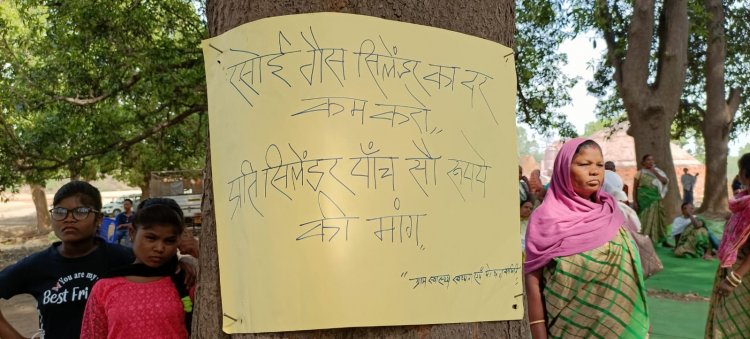 रसोई गैस सिलेंडर का दर
कम करो,,
प्रति सिलेंडर पाँच सौ रूपये
की मांग,,
YOU are my
Best Fri